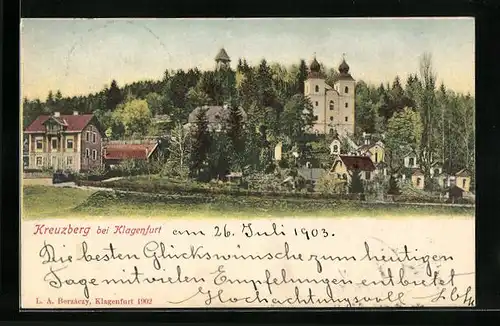 Kreuzberg bei Klagenfurt am 26. Juli 1903.
Die besten Glückswünsche zum heutigen
Tage mit vielen Empfelungen entbietet
Hochachtungsvoll
L. A. Berzáczy, Klagenfurt 1902